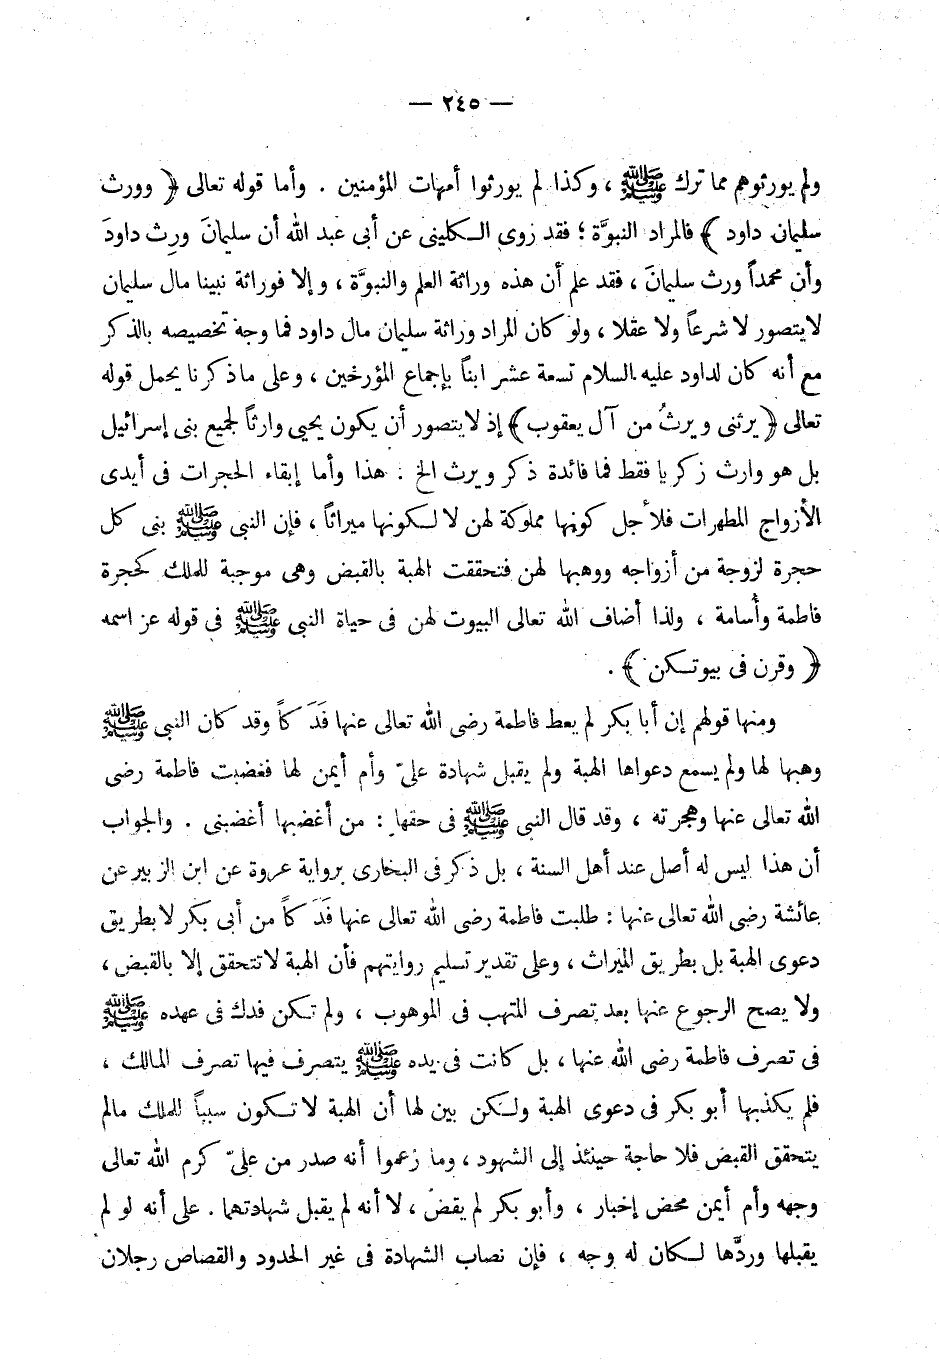 — ٢٤٥ —
ولم يورثوهم مما ترك ﷺ ، وكذا لم يورثوا أمهات المؤمنين . وأما قوله تعالى ﴿ وورث
سليمان داود ﴾ فالمراد النبوَّة ؛ فقد زوى الكلينى عن أبى عبد الله أن سليمانَ ورِث داودَ
وأن محمداً ورث سليمانَ ، فقد علم أن هذه وراثة العلم والنبوَّة ، وإلا فوراثة نبينا مال سليمان
لايتصور لا شرعاً ولا عقلا ، ولو كان المراد وراثة سليمان مال داود فما وجه تخصيصه بالذكر
مع أنه كان لداود عليه السلام تسعة عشر ابناً بإجماع المؤرخين ، وعلى ما ذكرنا يحمل قوله
تعالى ﴿ يرثنى ويرثُ من آل يعقوب ﴾ إذ لايتصور أن يكون يحيى وارثاً لجميع بنى إسرائيل
بل هو وارث زكريا فقط فما فائدة ذكر ويرث الخ . هذا وأما إبقاء الحجرات فى أيدى
الأزواج المطهرات فلأجل كونها مملوكة لهن لا لكونها ميراثاً ، فإن النبى ﷺ بنى كل
حجرة لزوجة من أزواجه ووهبها لهن فتحققت الهبة بالقبض وهى موجبة للملك كحجرة
فاطمة وأسامة ، ولذا أضاف الله تعالى البيوت لهن فى حياة النبى ﷺ فى قوله عز اسمه
﴿ وقرن فى بيوتكن ﴾ .
ومنها قولهم إن أبا بكر لم يعط فاطمة رضى الله تعالى عنها فَدَكاً وقد كان النبى ﷺ
وهبها لها ولم يسمع دعواها الهبة ولم يقبل شهادة علىّ وأم أيمن لها فغضبت فاطمة رضى
الله تعالى عنها وهجرته ، وقد قال النبى ﷺ فى حقها : من أغضبها أغضبنى . والجواب
أن هذا ليس له أصل عند أهل السنة ، بل ذكر فى البخارى برواية عروة عن ابن الزبير عن
عائشة رضى الله تعالى عنها : طلبت فاطمة رضى الله تعالى عنها فَدَكاً من أبى بكر لا بطريق
دعوى الهبة بل بطريق الميراث ، وعلى تقدير تسليم روايتهم فأن الهبة لا تتحقق إلا بالقبض ،
ولا يصح الرجوع عنها بعد تصرف المتهب فى الموهوب ، ولم تكن فدك فى عهده ﷺ
فى تصرف فاطمة رضى الله عنها ، بل كانت فى يده ﷺ يتصرف فيها تصرف المالك ،
فلم يكذبها أبو بكر فى دعوى الهبة ولكن بين لها أن الهبة لا تكون سبباً للملك مالم
يتحقق القبض فلا حاجة حينئذ إلى الشهود ، وما زعموا أنه صدر من علىّ كرم الله تعالى
وجهه وأم أيمن محض إخبار ، وأبو بكر لم يقض ، لا أنه لم يقبل شهادتهما . على أنه لو لم
يقبلها وردَّها لكان له وجه ، فإن نصاب الشهادة فى غير الحدود والقصاص رجلان